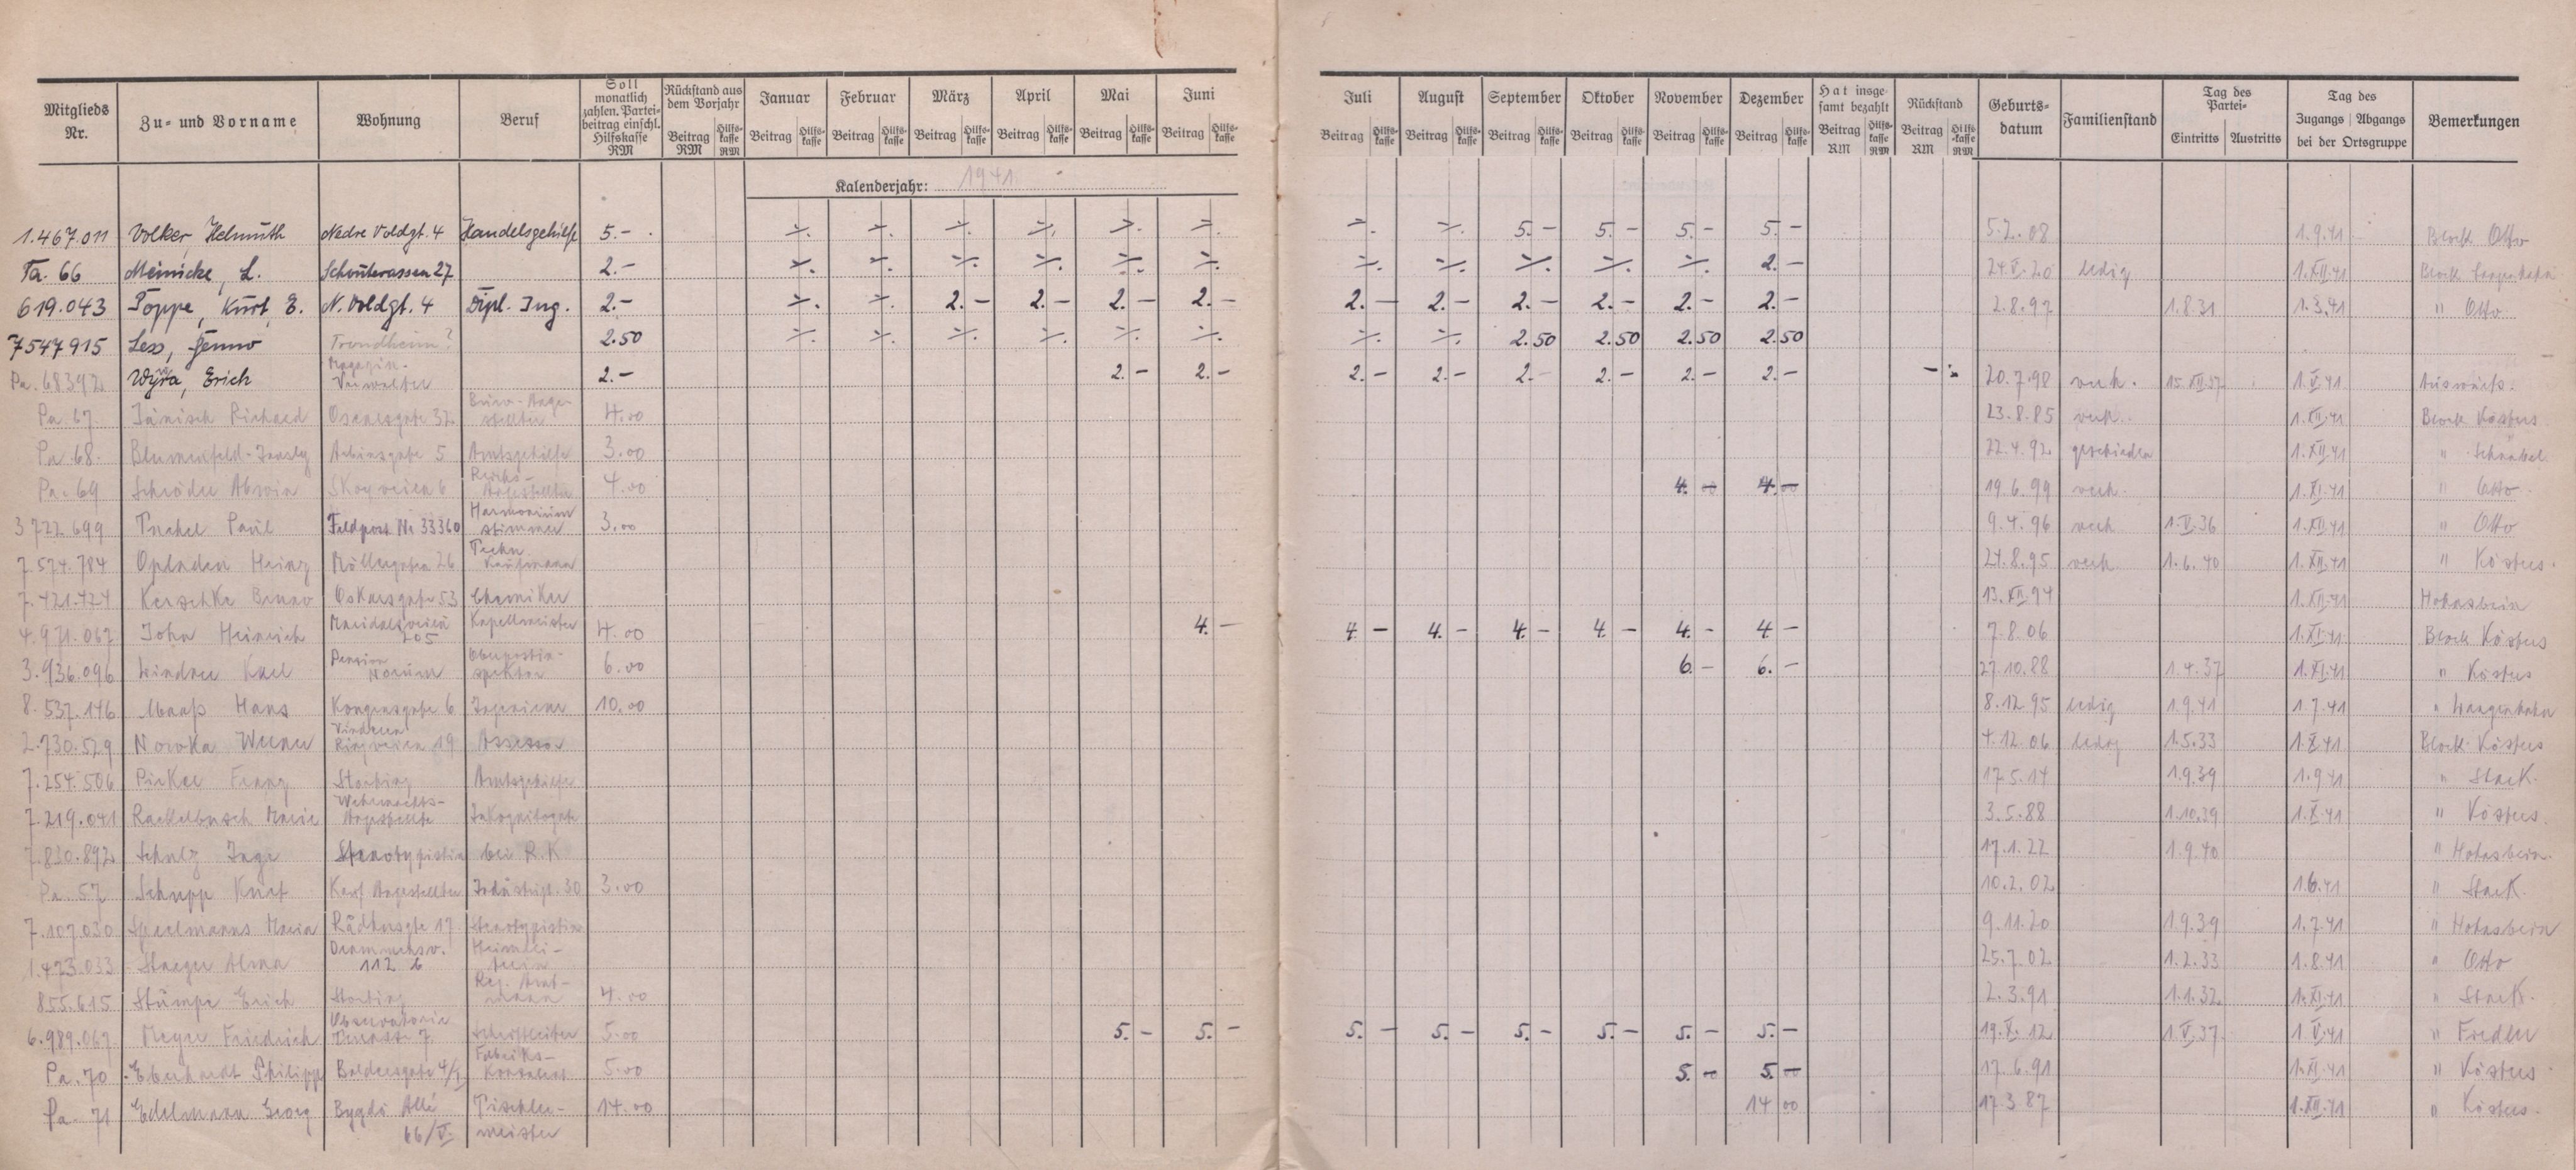 Mitglieds Nr. | Zu- und Vorname | Wohnung | Beruf | Soll monatlich zahlen. Parteibeitrag einschl. Hilfskasse RM | Rückstand aus dem Vorjahr Beitrag RM Hilfskasse RM | Januar Beitrag Hilfskasse | Februar Beitrag Hilfskasse | März Beitrag Hilfskasse | April Beitrag Hilfskasse | Mai Beitrag Hilfskasse | Juni Beitrag Hilfskasse | Juli Beitrag Hilfskasse | August Beitrag Hilfskasse | September Beitrag Hilfskasse | Oktober Beitrag Hilfskasse | November Beitrag Hilfskasse | Dezember Beitrag Hilfskasse | Hat insgesamt bezahlt Beitrag RM Hilfskasse RM | Rückstand Beitrag RM Hilfskasse RM | Geburtsdatum | Familienstand | Tag des Partei- Eintritts Austritts | Tag des Zugangs Abgangs bei der Ortsgruppe | Bemerkungen
Kalenderjahr: 1941
1.467.011 Volker Helmuth Nedre Voldgt. 4 Handelsgehilfe 5.- ⁒ ⁒ ⁒ ⁒ ⁒ ⁒ ⁒ ⁒ 5.- 5.- 5.- 5.- 5.2.08 1.9.41 Block Otto
Pa. 66 Meinicke, L. 2.- ⁒ ⁒ ⁒ ⁒ ⁒ ⁒ ⁒ ⁒ ⁒ ⁒ ⁒ 2.- 24.V.20 ledig 1.XII.41 Block
619.043 Poppe, Kurt E. N. Voldgt. 4 Dipl. Ing. 2.- ⁒ ⁒ 2.- 2.- 2.- 2.- 2.- 2.- 2.- 2.- 2.- 2.- 2.8.97 1.8.31 1.3.41 " Otto
7547915 Less, Trondheim? 2.50 ⁒ ⁒ ⁒ ⁒ ⁒ ⁒ ⁒ ⁒ 2.50 2.50 2.50 2.50
Pa. 68392 Wyra, Erich Magazin-Verwalter 2.- 2.- 2.- 2.- 2.- 2.- 2.- 2.- 2.- 20.7.98 verh. 15.XII.37 1.V.41 Auswärts.
Pa. 67 Jänisch Richard Oscarsgate 32 Büro-Angestellter 4.00 23.8.85 verh. 1.XII.41 Block Kösters
Pa. 68. 5 Amtsgehilfe 3.00 22.4.92 geschieden 1.XII.41 " Schnabel
Pa. 69 Schröder Skogveien 6 Reichs-Angestellter 4.00 4.00 4.00 19.6.99 verh. 1.XI.41 " Otto
3722699 Paul Feldpost Nr 33360 Harmoniumstimmer 3.00 9.4.96 verh. 1.V.36 1.XII.41 " Otto
7.574.784 Opladen Heinz Möllergaten 26 Techn. Kaufmann 24.8.95 verh. 1.6.40 1.XII.41 " Kösters
7.421.424 Kerschke Bruno Oskarsgate 53 Chemiker 13.XII.94 1.XII.41 Hohnsbein
4.971.067 John Heinrich Maridalsveien 205 Kapellmeister 4.00 4.- 4.- 4.- 4.- 4.- 4.- 4.- 7.8.06 1.XI.41 Block Kösters
3.936.096 Karl Pension Oberpostinspektor 6.00 6.- 6.- 27.10.88 1.4.37 1.XI.41 " Kösters
8.537.146 Maaß Hans Kongensgate 6 Ingenieur 10.00 8.12.95 ledig 1.9.41 1.7.41 "
2.730.529 Nowka Werner Vinderen Ringveien 19 Assessor 4.12.06 ledig 1.5.33 1.X.41 Block Kösters
7.254.506 Pirker Franz Storting Amtsgehilfe 17.5.14 1.9.39 1.9.41 " Stark
7.219.041 Maria Wehrmachts-Angestellte Inkognitogate 3.5.88 1.10.39 1.X.41 " Kösters
7.830.892 Schulz Inge Stenotypistin bei R.K 17.1.22 1.9.40 " Hohnsbein
Pa. 57 Schupp Kurt Kauf. Angestellter 30 3.00 10.2.02 1.6.41 " Stark.
7.107.030 Spielmanns Maria Rådhusgte 17 Stenotypistin 9.11.20 1.9.39 1.7.41 " Hohnsbein
1.473.033 Staeger Alma Drammensv. 112 b Heimleiterin 25.7.02 1.2.33 1.8.41 " Otto
855.615 Stümpe Erich Storting Reg. Amtmann 4.00 2.3.91 1.1.32 1.XI.41 " Stark.
6.989.067 Meyer Friedrich Observatorie Terrasse 7 Schriftleiter 5.00 5.- 5.- 5.- 5.- 5.- 5.- 5.- 5.- 19.X.12 1.V.37 1.V.41 "
Pa. 70 Eberhardt Philipp Baldersgate Fabriks- 5.00 5.00 5.00 17.6.91 1.XI.41 " Kösters
Pa. 71 Edelmann Georg Bygdö Allé 66/V. Tischlermeister 14.00 14 00 17.3.87 1.XII.41 " Kösters.